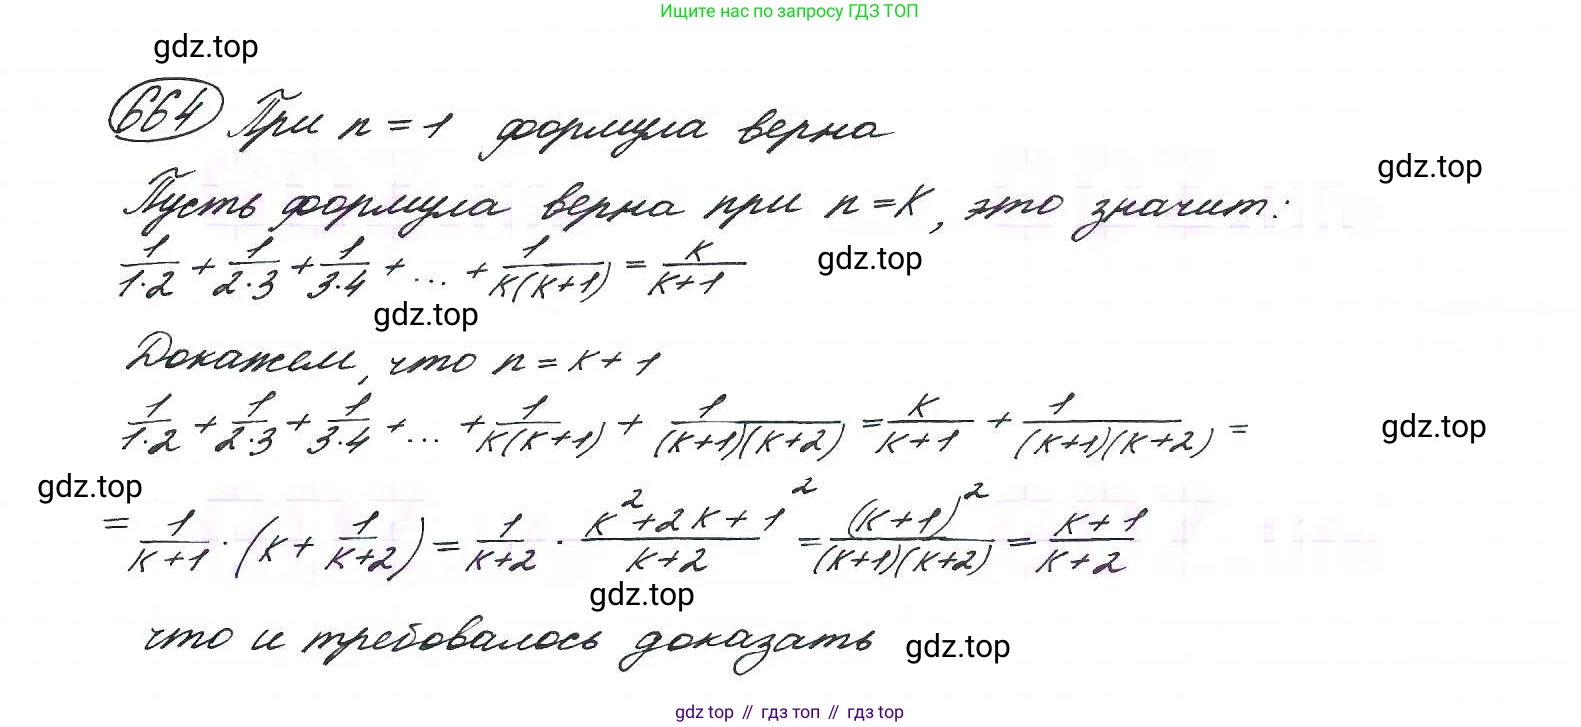 Ищите нас по запросу ГДЗ ТОП
gdz.top
664 При n = 1 формула верна
gdz.top
Пусть формула верна при n = K, это значит:
1/(1·2) + 1/(2·3) + 1/(3·4) + ... + 1/(K(K+1)) = K/(K+1)
gdz.top
gdz.top
Докажем, что n = K + 1
1/(1·2) + 1/(2·3) + 1/(3·4) + ... + 1/(K(K+1)) + 1/((K+1)(K+2)) = K/(K+1) + 1/((K+1)(K+2)) =
gdz.top
gdz.top
= 1/(K+1) · (K + 1/(K+2)) = 1/(K+2) · (K²+2K+1²)/(K+2) = (K+1)²/((K+1)(K+2)) = (K+1)/(K+2)
gdz.top
что и требовалось доказать
gdz.top
gdz top // гдз топ // гдз top